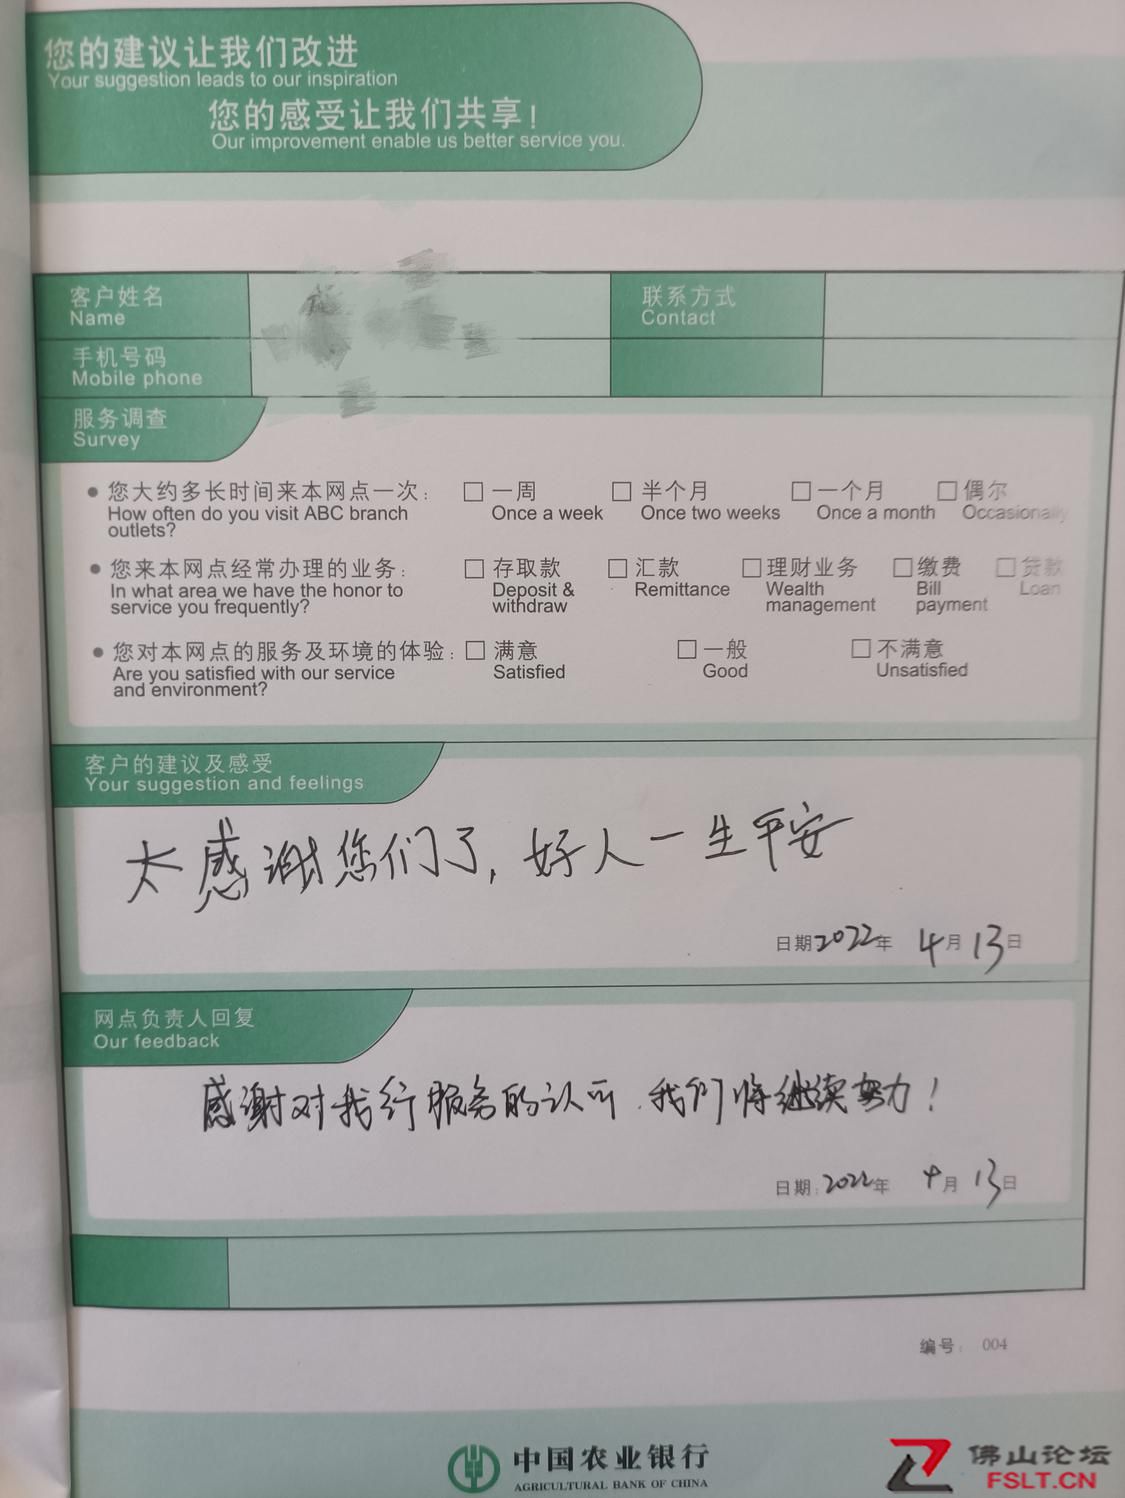 您的建议让我们改进
Your suggestion leads to our inspiration
您的感受让我们共享！
Our improvement enable us better service you.
客户姓名
Name
联系方式
Contact
手机号码
Mobile phone
服务调查
Survey
● 您大约多长时间来本网点一次： □ 一周 □ 半个月 □ 一个月 □ 偶尔
How often do you visit ABC branch Once a week Once two weeks Once a month Occasionally
outlets?
● 您来本网点经常办理的业务： □ 存取款 □ 汇款 □ 理财业务 □ 缴费 □ 贷款
In what area we have the honor to Deposit & Remittance Wealth Bill Loan
service you frequently? withdraw management payment
● 您对本网点的服务及环境的体验： □ 满意 □ 一般 □ 不满意
Are you satisfied with our service Satisfied Good Unsatisfied
and environment?
客户的建议及感受
Your suggestion and feelings
太感谢您们了，好人一生平安
日期：2022年 4月 13日
网点负责人回复
Our feedback
感谢对我行服务的认可，我们将继续努力！
日期：2022年 4月 13日
编号： 004
中国农业银行
AGRICULTURAL BANK OF CHINA
佛山论坛
FSLT.CN